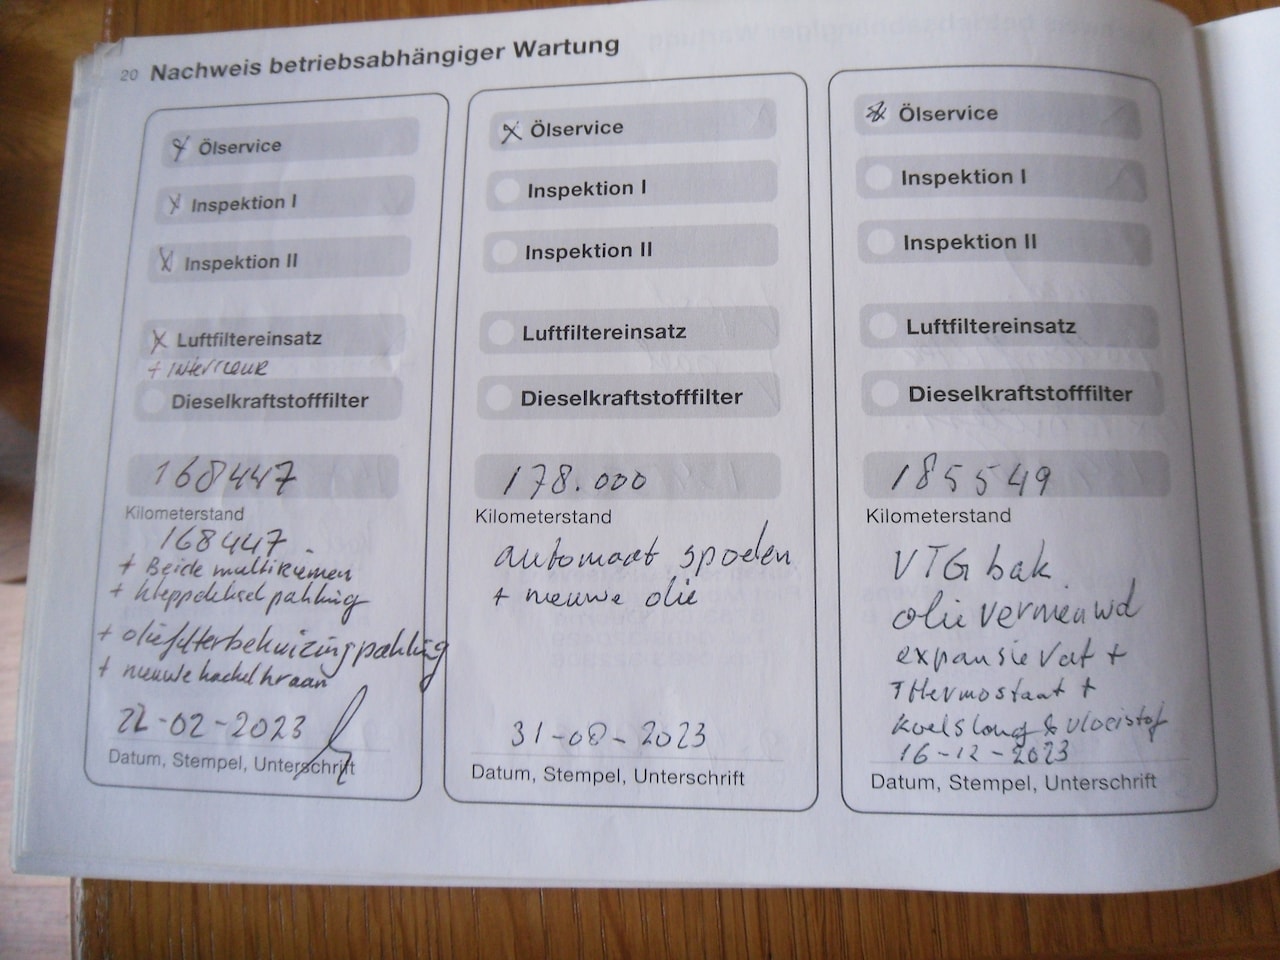 20 Nachweis betriebsabhängiger Wartung
x Ölservice
x Inspektion I
x Inspektion II
x Luftfiltereinsatz
+ interieur
Dieselkraftstofffilter
168447
Kilometerstand
168447.
+ Beide multiriemen
+ kleppendeksel pakking
+ oliefilterbehuizing pakking
+ nieuwe kachelkraan
22-02-2023
Datum, Stempel, Unterschrift
x Ölservice
Inspektion I
Inspektion II
Luftfiltereinsatz
Dieselkraftstofffilter
178.000
Kilometerstand
automaat spoelen
+ nieuwe olie
31-08-2023
Datum, Stempel, Unterschrift
x Ölservice
Inspektion I
Inspektion II
Luftfiltereinsatz
Dieselkraftstofffilter
185549
Kilometerstand
VTG bak
olie vernieuwd
expansievat +
THermostaat +
koelslang & vloeistof
16-12-2023
Datum, Stempel, Unterschrift